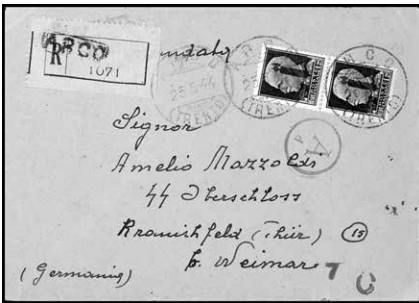 ARCO
R
1071
25.5.44
(TRENTO)
(TRENTO)
(TRENTO)
A
P
Signor
Amelio Mazzoldi
44 Oberschloss
Kranichfeld (Thür) (15)
b. Weimar
(Germania)